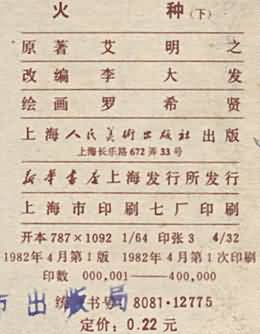 火 种(下)
原著 艾明之
改编 李大发
绘画 罗希贤
上海人民美术出版社出版
上海长乐路672弄33号
新华书店上海发行所发行
上海市印刷七厂印刷
开本787×1092 1/64 印张3 4/32
1982年4月第1版 1982年4月第1次印刷
印数 000,001——400,000
统 书号:8081·12775
市出版局
定价:0.22元